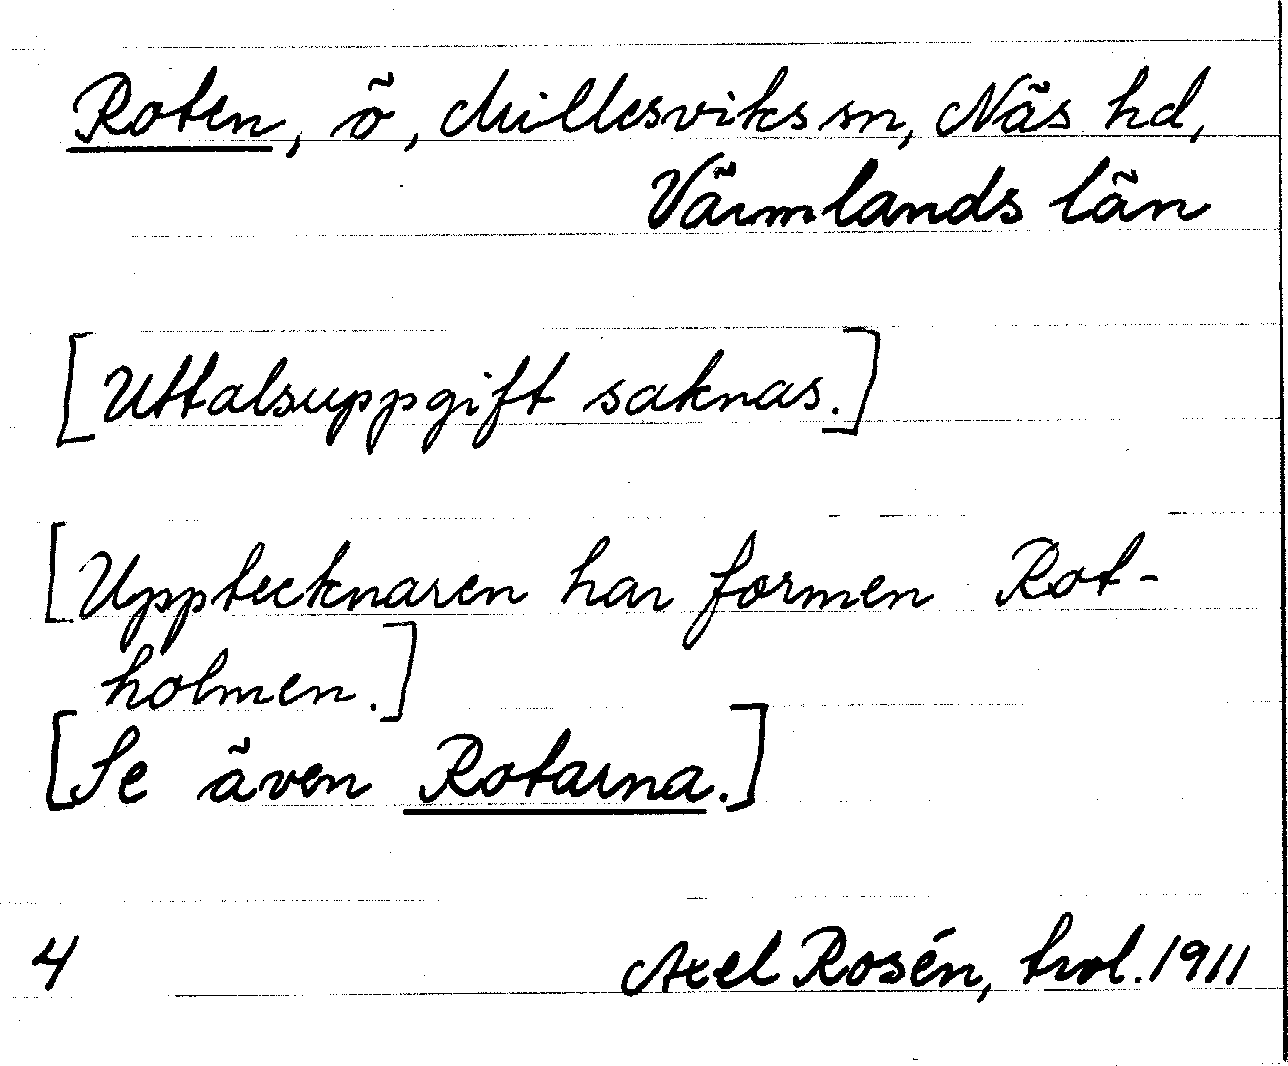 Roten, ö, Millesviks sn, Näs hd,
Värmlands län
[Uttalsuppgift saknas.]
[Upptecknaren har formen Rot-
holmen.]
[Se även Rotarna.]
4 Axel Rosén, trol. 1911